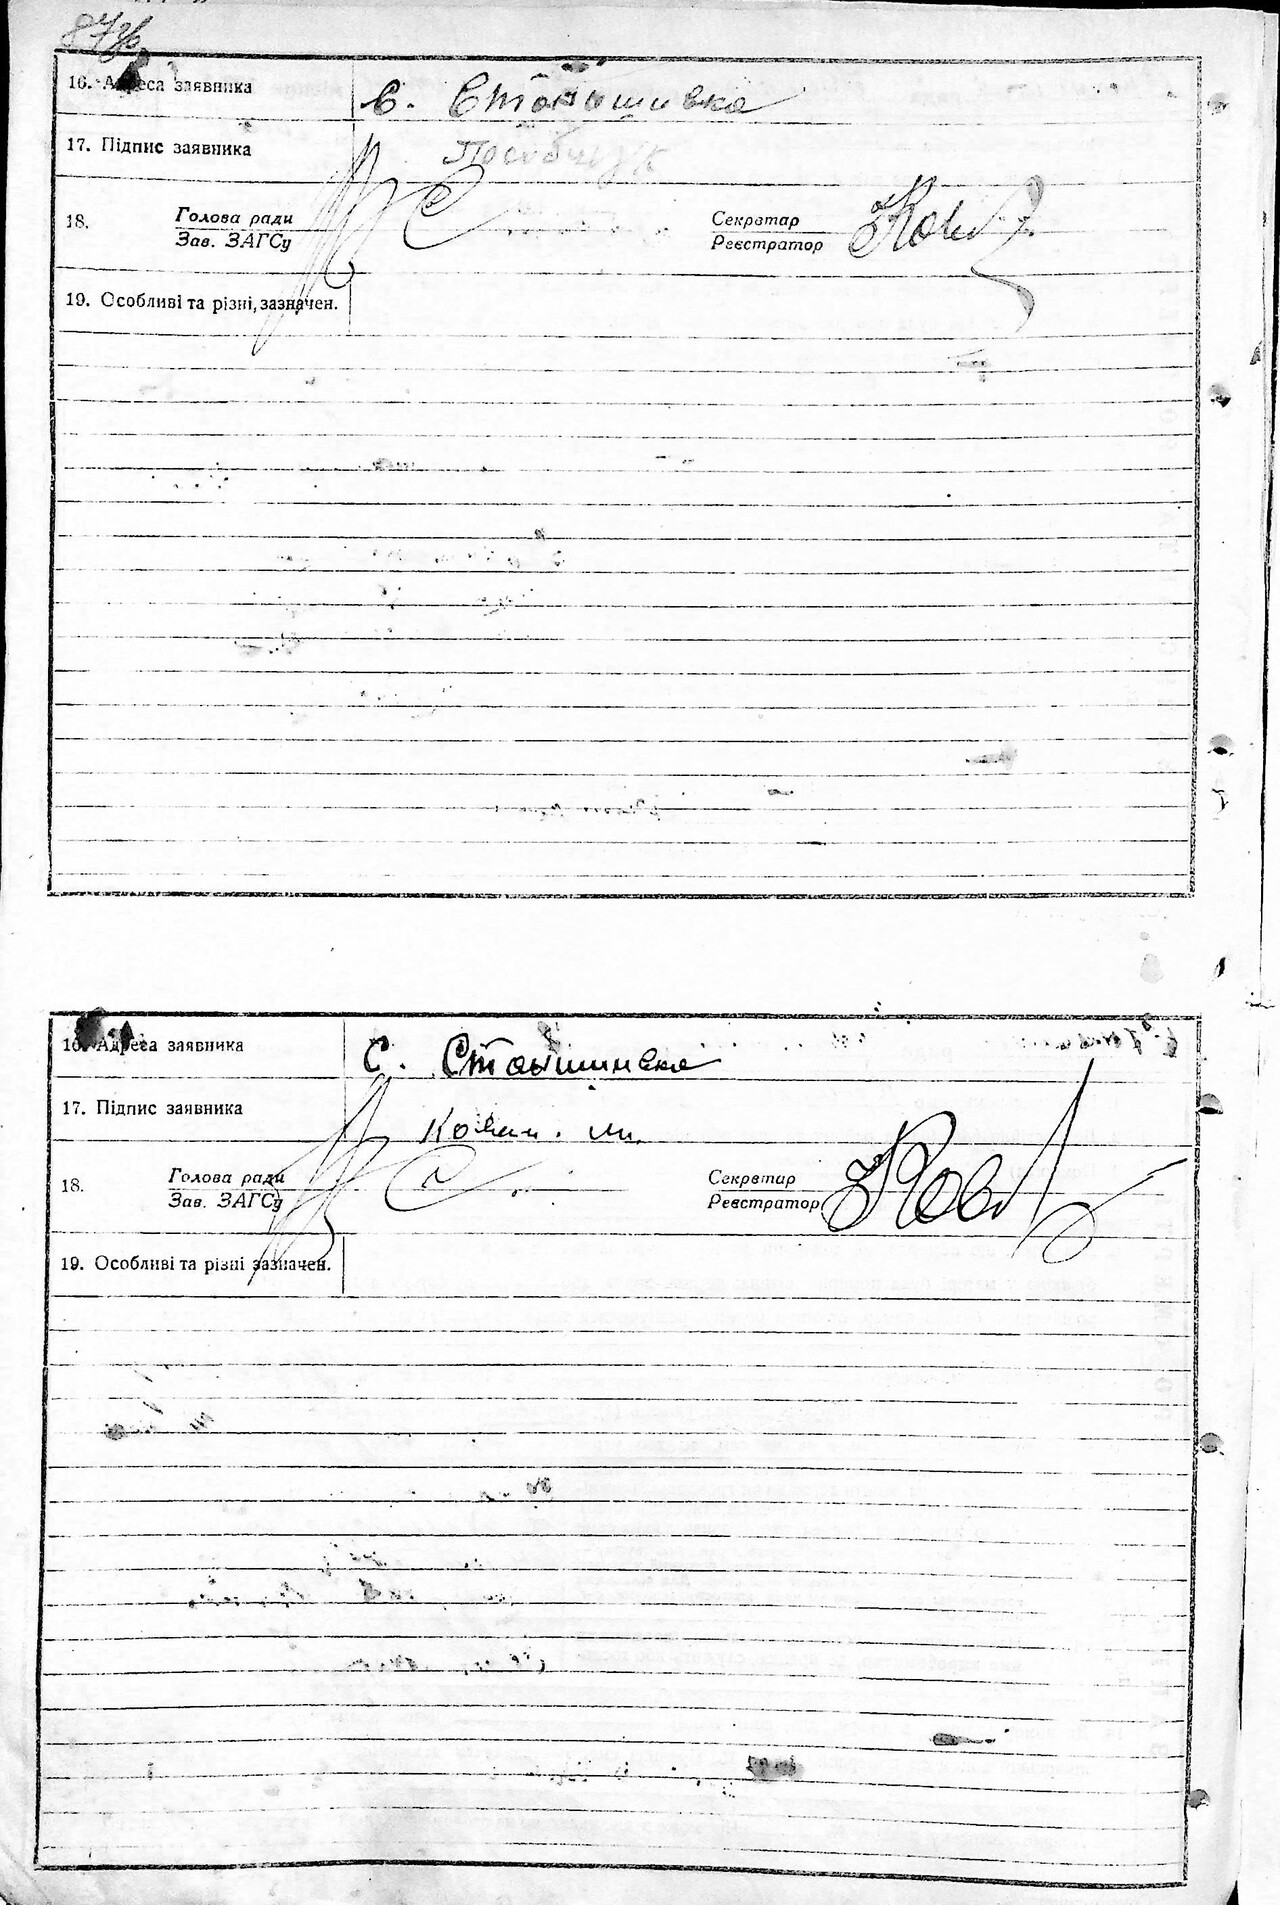 16. Адреса заявника С. Станишивка
17. Підпис заявника
18. Голова ради Секретар
Зав. ЗАГСу Реєстратор
19. Особливі та різні зазначен.
16. Адреса заявника С. Станишивка
17. Підпис заявника
18. Голова ради Секретар
Зав. ЗАГСу Реєстратор
19. Особливі та різні зазначен.